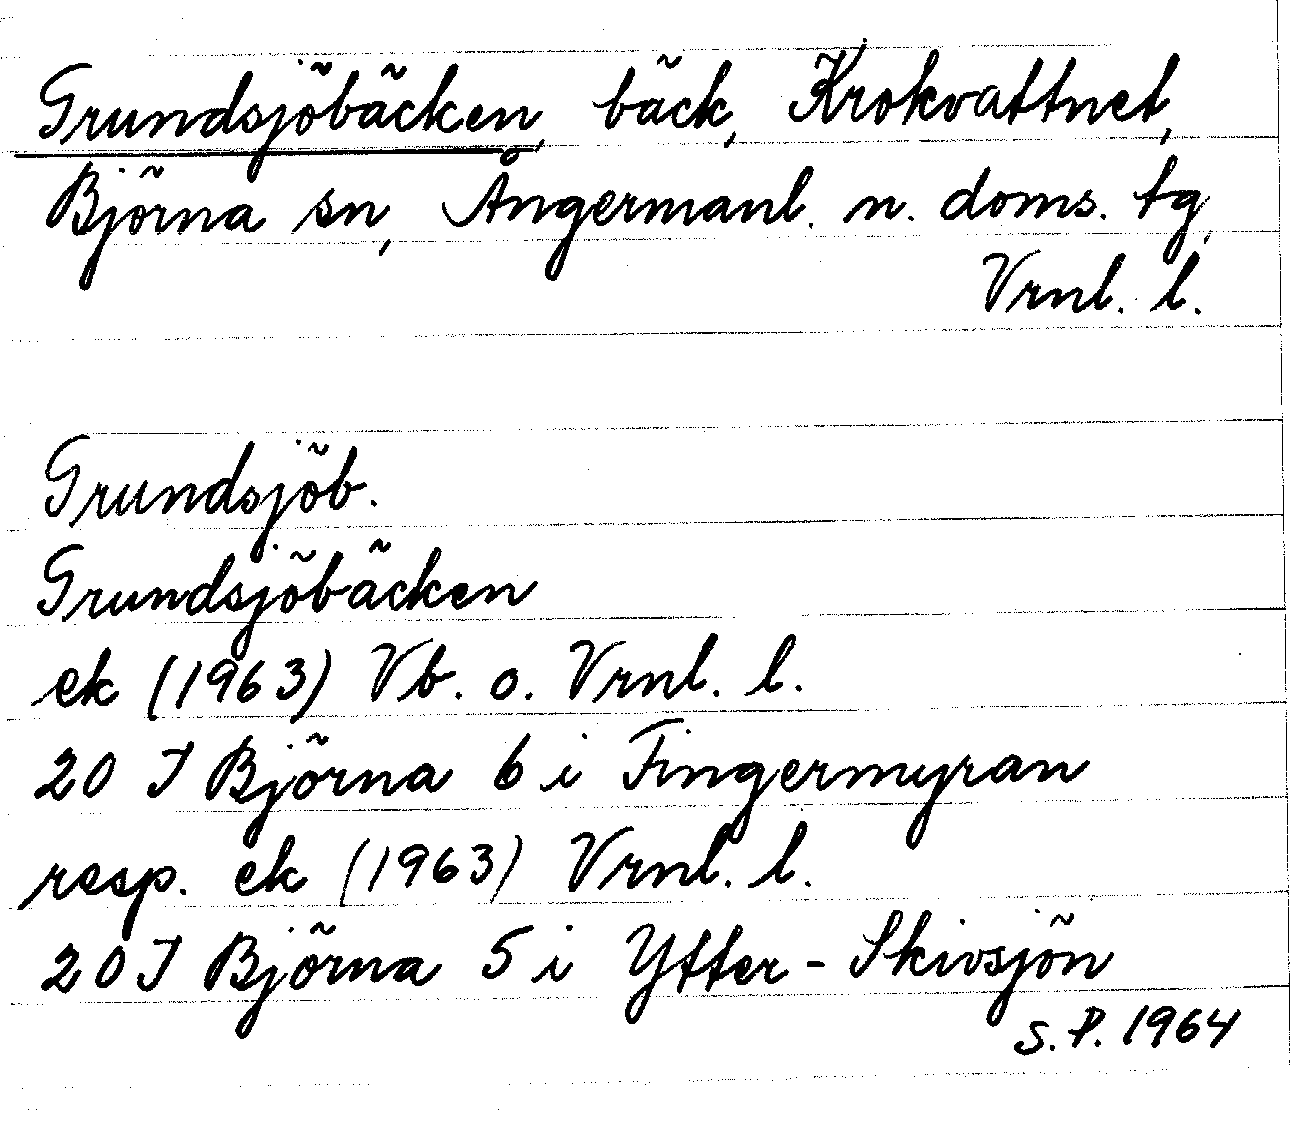 Grundsjöbäcken, bäck, Krokvattnet,
Björna sn, Ångermanl. n. doms. tg,
Vrnl. l.
Grundsjöb.
Grundsjöbäcken
ek (1963) Vb. o. Vrnl. l.
20 I Björna 6 i Fingermyran
resp. ek (1963) Vrnl. l.
20 I Björna 5 i Ytter-Skivsjön
S.P. 1964